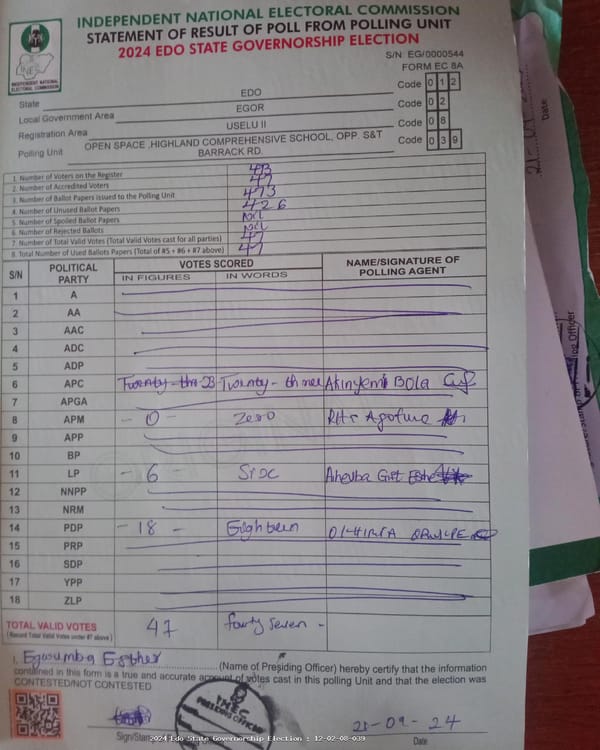 INDEPENDENT NATIONAL ELECTORAL COMMISSION
STATEMENT OF RESULT OF POLL FROM POLLING UNIT
2024 EDO STATE GOVERNORSHIP ELECTION
S/N: EG/0000544
FORM EC 8A
INEC
INDEPENDENT NATIONAL
ELECTORAL COMMISSION
State EDO Code 0 1 2
Local Government Area EGOR Code 0 2
Registration Area USELU II Code 0 8
Polling Unit OPEN SPACE ,HIGHLAND COMPREHENSIVE SCHOOL, OPP. S&T BARRACK RD. Code 0 3 9
1. Number of Voters on the Register
2. Number of Accredited Voters 47
3. Number of Ballot Papers issued to the Polling Unit 473
4. Number of Unused Ballot Papers 426
5. Number of Spoiled Ballot Papers Nil
6. Number of Rejected Ballots Nil
7. Number of Total Valid Votes (Total Valid Votes cast for all parties) 47
8. Total Number of Used Ballots Papers (Total of #5 + #6 + #7 above) 47
S/N POLITICAL PARTY VOTES SCORED NAME/SIGNATURE OF POLLING AGENT
IN FIGURES IN WORDS
1 A
2 AA
3 AAC
4 ADC
5 ADP
6 APC Twenty-thr 23 Twenty-three Akinyemi Bola
7 APGA
8 APM -0- Zero
9 APP
10 BP
11 LP -6- Six
12 NNPP
13 NRM
14 PDP -18- Eighteen
15 PRP
16 SDP
17 YPP
18 ZLP
TOTAL VALID VOTES 47 fourty seven -
(Record Total Valid Votes under #7 above)
I, Esther (Name of Presiding Officer) hereby certify that the information
contained in this form is a true and accurate account of votes cast in this polling Unit and that the election was
CONTESTED/NOT CONTESTED
INEC
PRESIDING OFFICER
21-09-24
Date
2024 Edo State Governorship Election : 12-02-08-039
Date